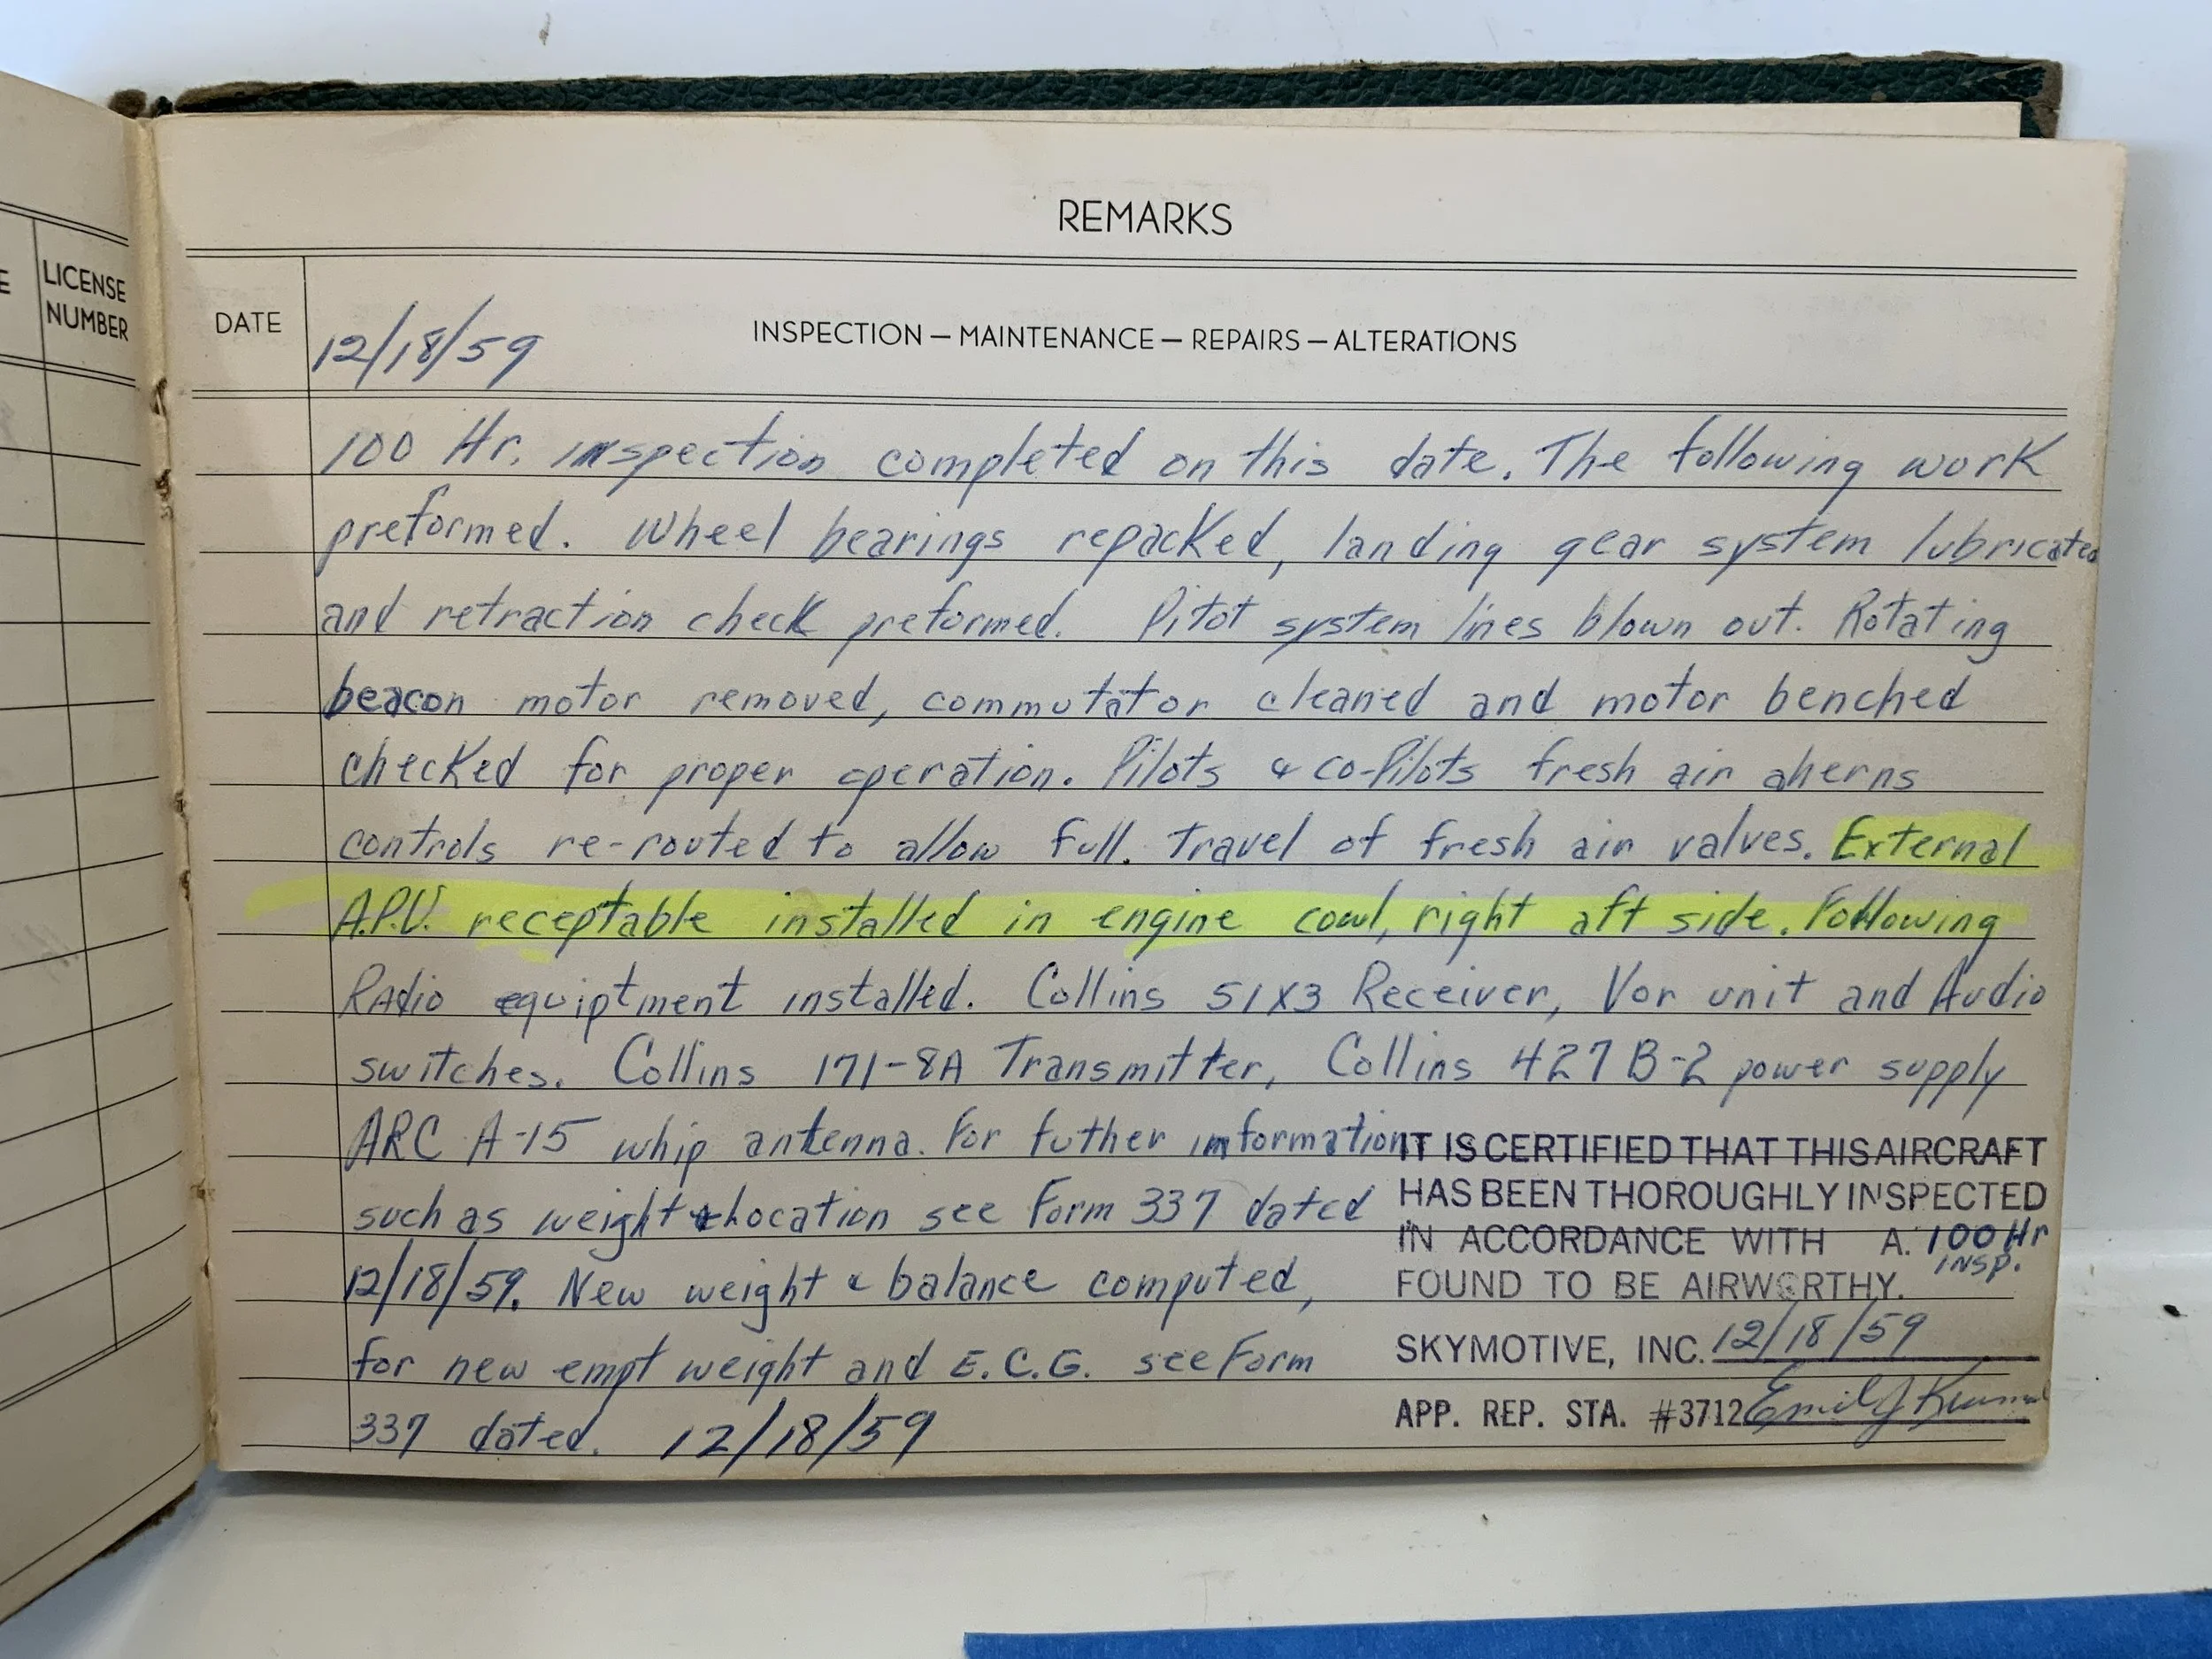 E
LICENSE
NUMBER
REMARKS
DATE
12/18/59
INSPECTION — MAINTENANCE — REPAIRS — ALTERATIONS
100 Hr. inspection completed on this date. The following work
preformed. Wheel bearings repacked, landing gear system lubricated
and retraction check preformed. Pitot system lines blown out. Rotating
beacon motor removed, commutator cleaned and motor benched
checked for proper operation. Pilots & co-Pilots fresh air
controls re-routed to allow full. Travel of fresh air valves. External
A.P.U. receptable installed in engine cowl, right aft side. Following
Radio equiptment installed. Collins 51X3 Receiver, Vor unit and Audio
switches. Collins 171-8A Transmitter, Collins 427 B-2 power supply
ARC A-15 whip antenna. For futher information
such as weight & Location see Form 337 dated
12/18/59. New weight & balance computed,
for new empt weight and E.C.G. see Form
337 dated. 12/18/59
IT IS CERTIFIED THAT THIS AIRCRAFT
HAS BEEN THOROUGHLY INSPECTED
IN ACCORDANCE WITH A. 100 Hr
INSP.
FOUND TO BE AIRWORTHY.
SKYMOTIVE, INC. 12/18/59
APP. REP. STA. #3712 Emil J